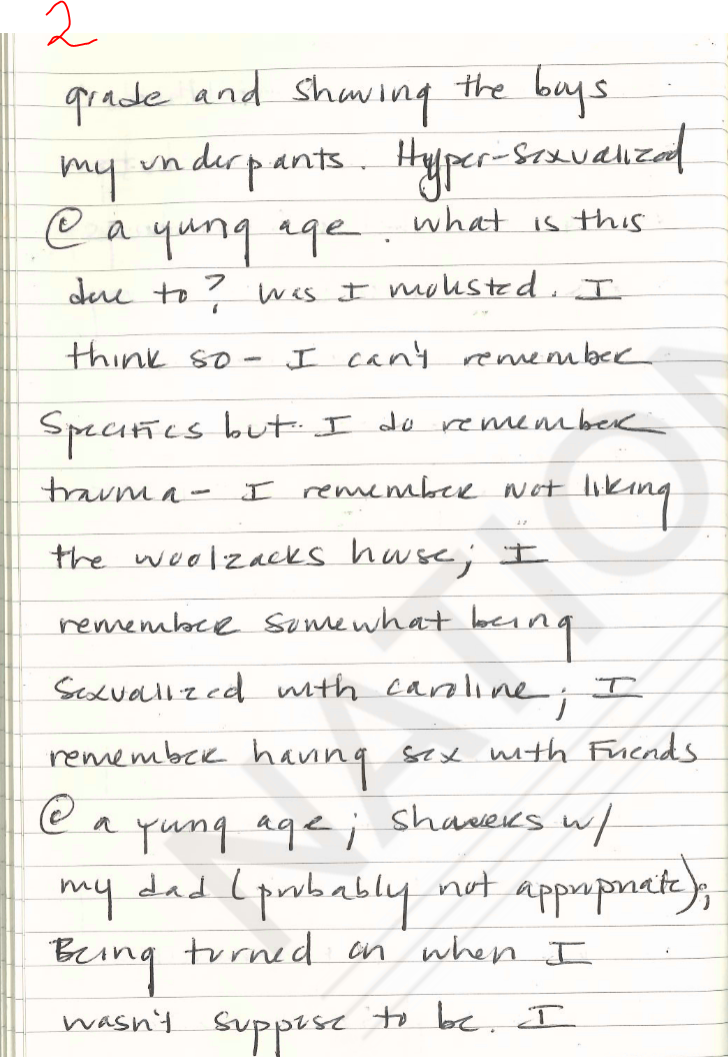 2
grade and showing the boys
my underpants. Hyper-sexualized
@ a yung age. what is this
due to? Was I molested. I
think so - I can't remember
specifics but I do remember
trauma - I remember not liking
the woolzacks house; I
remember somewhat being
sexualized with caroline; I
remember having sex with Friends
@ a yung age; showers w/
my dad (probably not appropriate);
Being turned on when I
wasn't suppose to be. I
NATIO